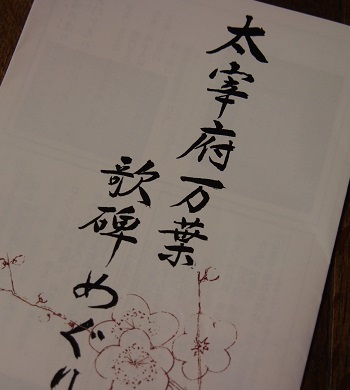 太宰府万葉
歌碑めぐり